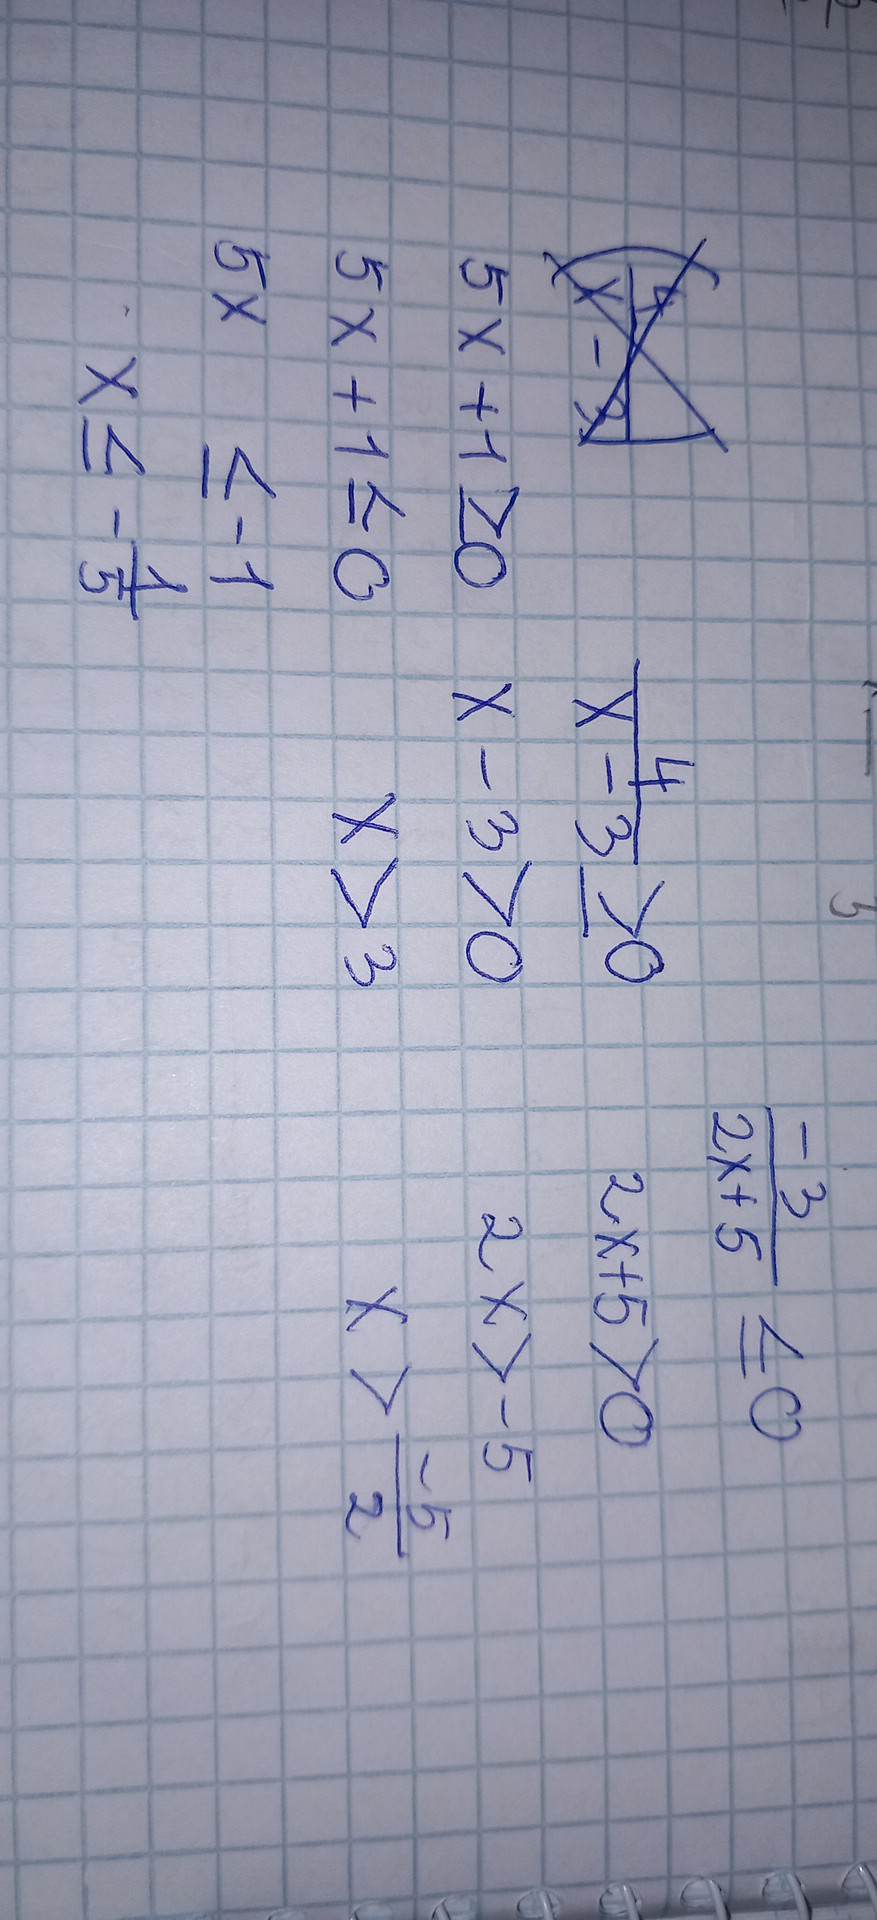 5x+1≥0
5x+1≤0
5x ≤-1
x≤-1/5
4/(x-3)≥0
x-3>0
x>3
-3/(2x+5)≤0
2x+5>0
2x>-5
x>-5/2